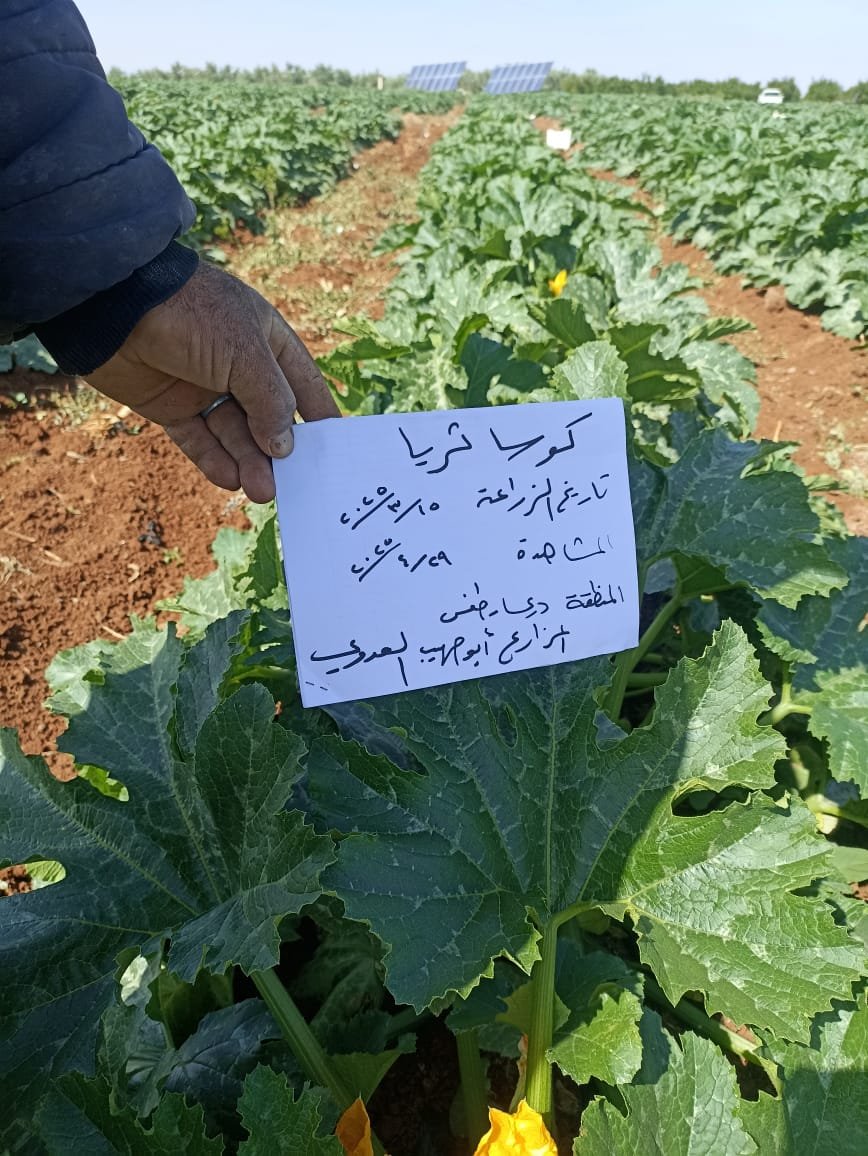 كوسا ثريا
تاريخ الزراعة ٢٠٢٥/٣/١٥
المشاهدة ٢٠٢٥/٤/٢٩
المنطقة درعا - طفس
المزارع أبو صهيب العدوي